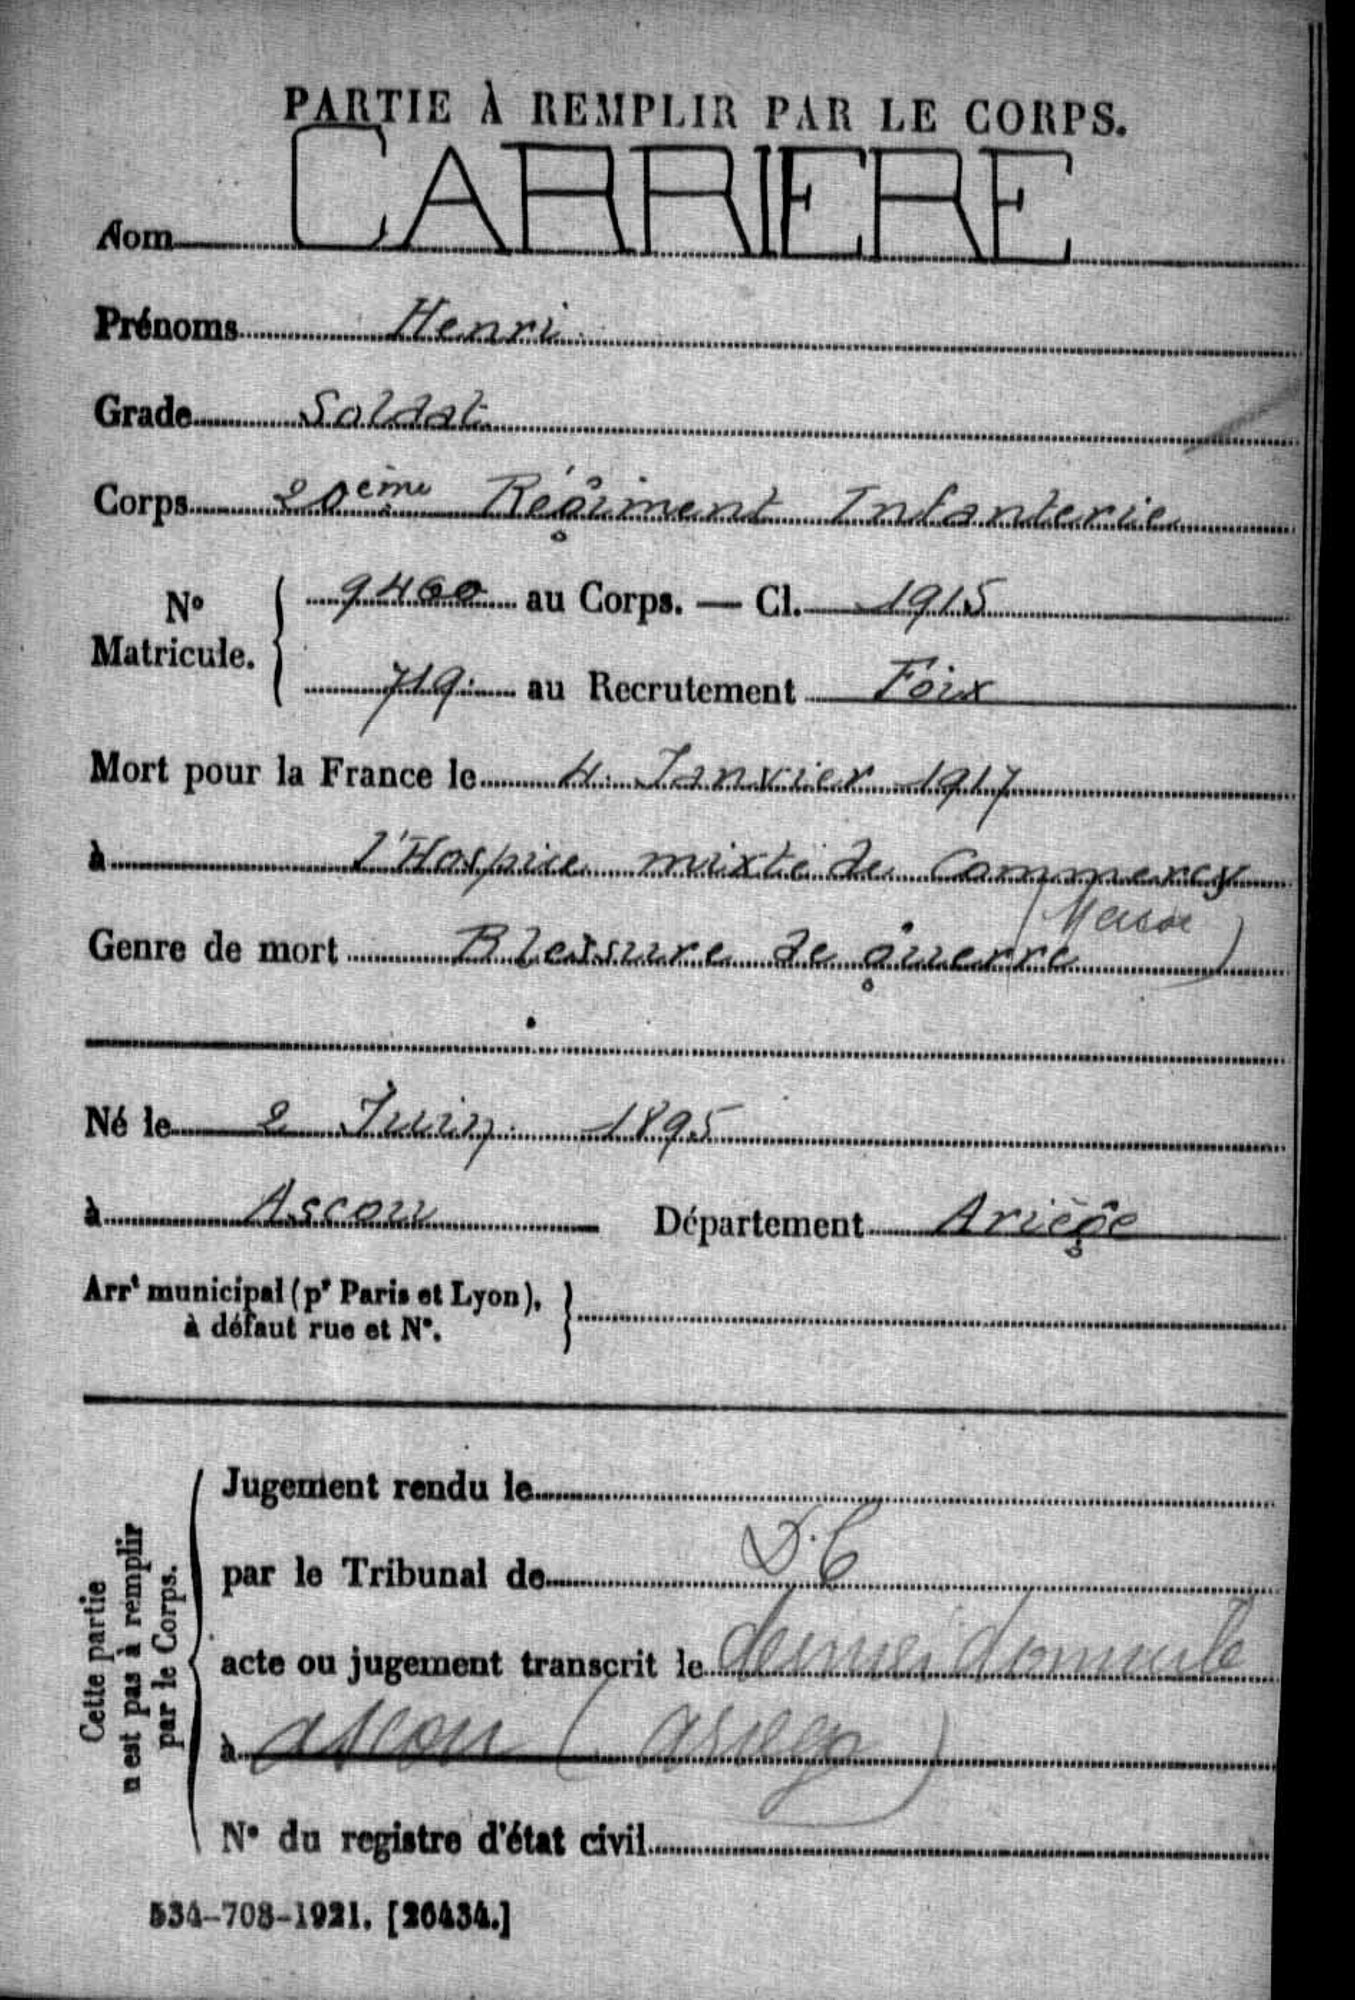 PARTIE À REMPLIR PAR LE CORPS.
Nom CARRIERE
Prénoms Henri
Grade Soldat
Corps 20ème Régiment Infanterie
N° Matricule. 9460 au Corps. — Cl. 1915
719 au Recrutement Foix
Mort pour la France le 4 Janvier 1917
à l'Hospice mixte de Commercy
(Meuse)
Genre de mort Blessure de guerre
Né le 2 Juin 1895
à Ascou Département Ariège
Arrt municipal (pr Paris et Lyon),
à défaut rue et N°.
Cette partie
n'est pas à remplir
par le Corps.
Jugement rendu le
par le Tribunal de D.C
acte ou jugement transcrit le dernier domicile
à Ascou (Ariège)
N° du registre d'état civil
534-708-1921. [26434.]